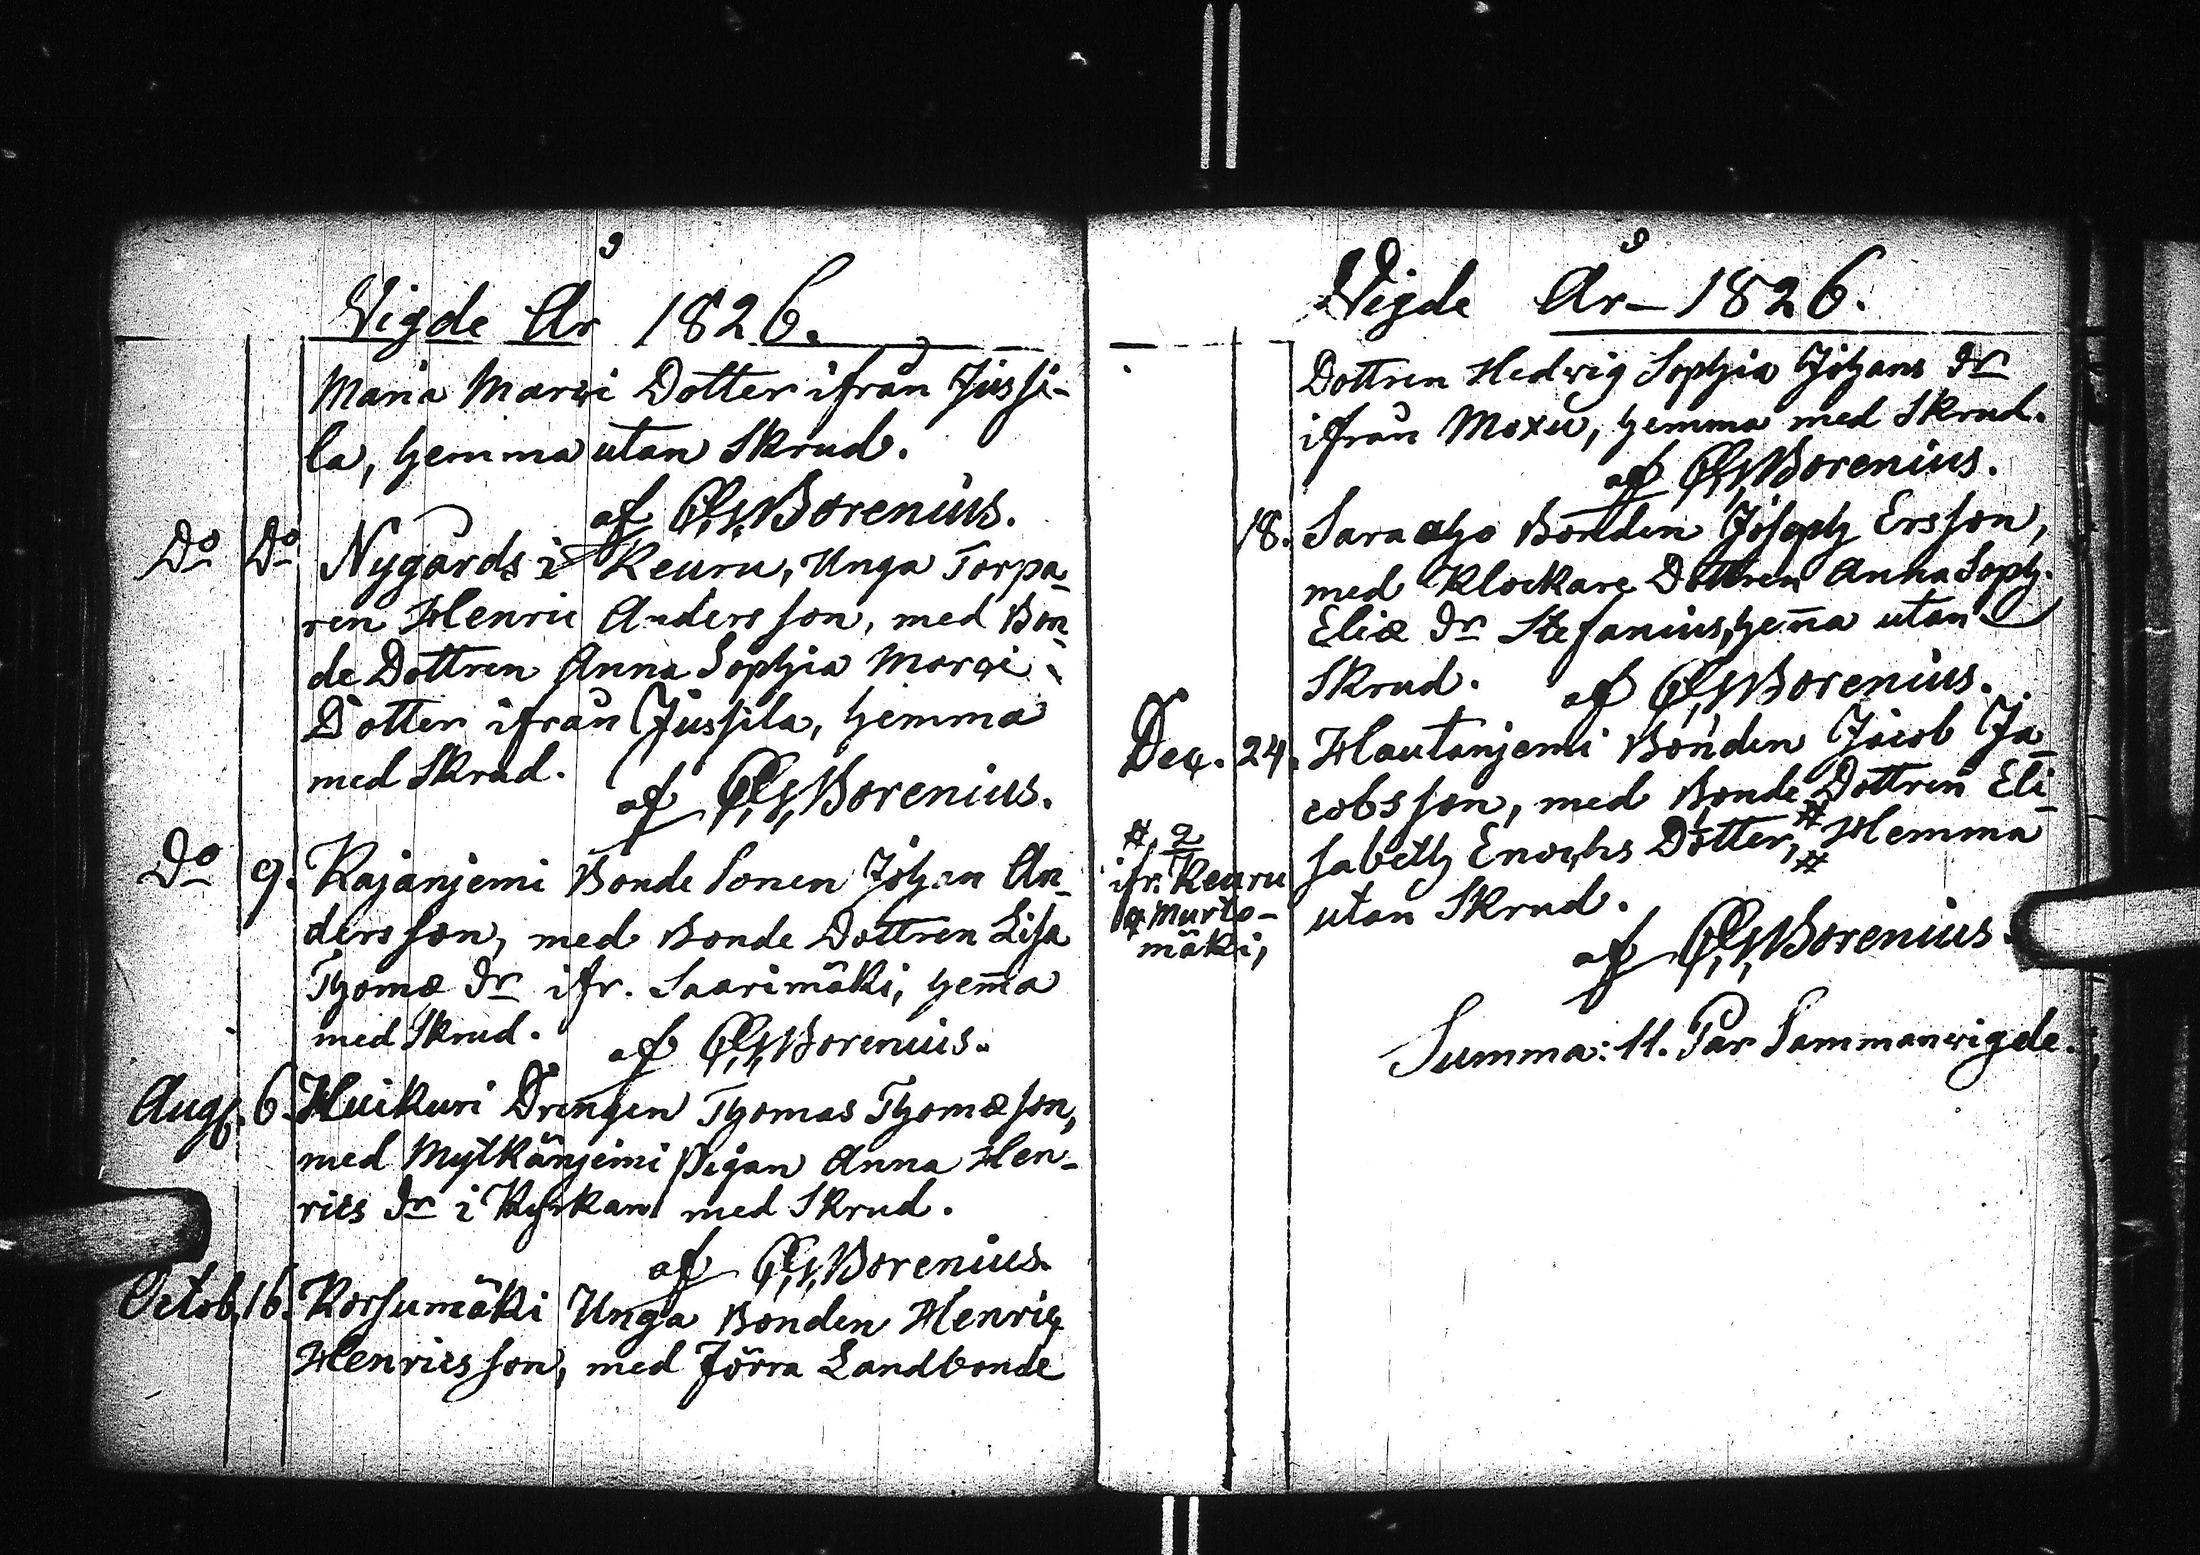 Vigde År 1826.
Maria Marci Dotter ifrån Jussi-
la, hemma utan Skrud.
af Borenius.
Do Do Nygårds i Keuru, Unga Torpa-
ren Henric Andersson, med Bon-
de Dottren Anna Sophia Marci
Dotter ifrån Jussila, hemma
med Skrud.
af Borenius.
Do 9. Kajanjemi Bonde Sonen Johan An-
dersson, med Bonde Dottren Lisa
Thomæ Dr ifr. Saarimäki, hem̄a
med Skrud. af Borenius.
Aug. 6. Huikuri Drengen Thomas Thomæson,
med Mytkänjemi Pigan Anna Hen-
rics Dr i Kyrkan med Skrud.
af Borenius.
Octob. 16. Korsumäki Unga Bonden Henric
Henricsson, med Jörra Landbonde
Vigde År 1826.
Dottren Hedvig Sophia Johans Dr
ifrån Moxu, hemma med Skrud.
af Borenius.
18. Sara aho Bonden Joseph Ersson,
med Klockare Dottren Anna Soph.
Eliæ Dr Stefanius, hem̄a utan
Skrud. af Borenius.
Dec. 24. Hautanjemi Bonden Jacob Ja-
cobsson, med Bonde Dottren Eli-
sabeth Enochs Dotter, # Hemma
utan Skrud.
af Borenius.
#
ifr. Keuru
Murto-
mäki,
Summa: 11. Par Sammanvigde.